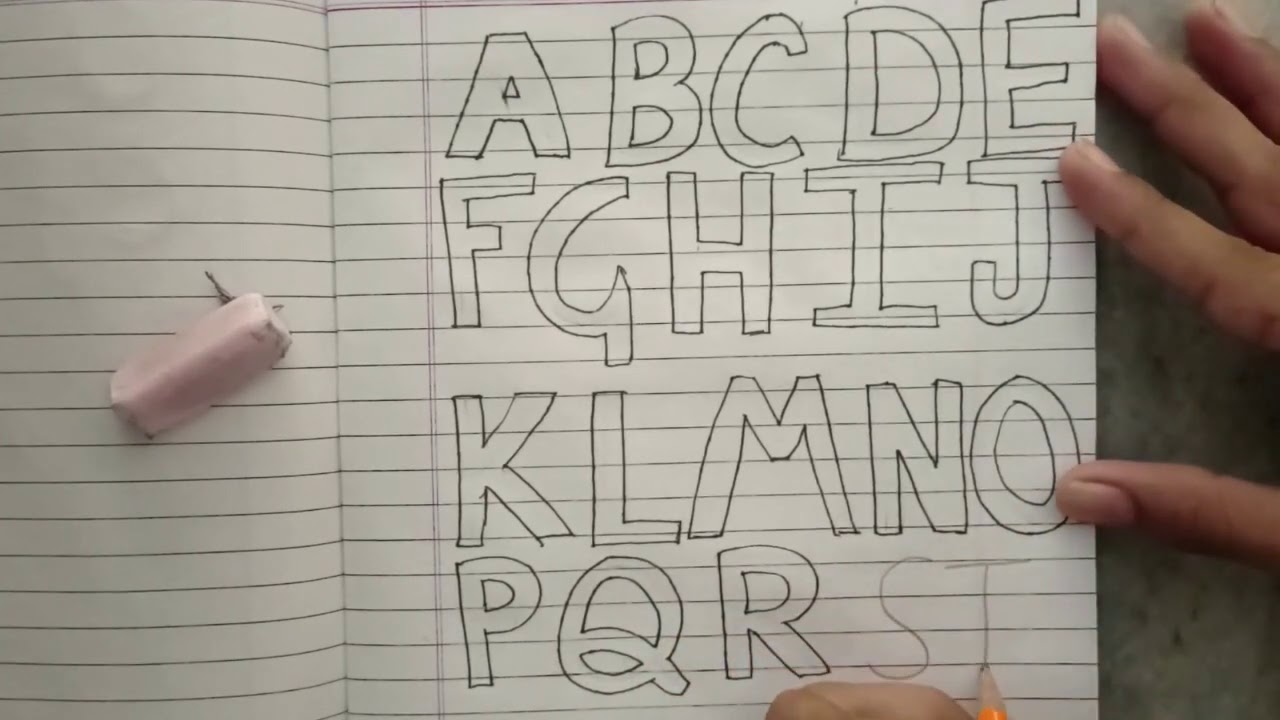 A B C D E
F G H I J
K L M N O
P Q R S T